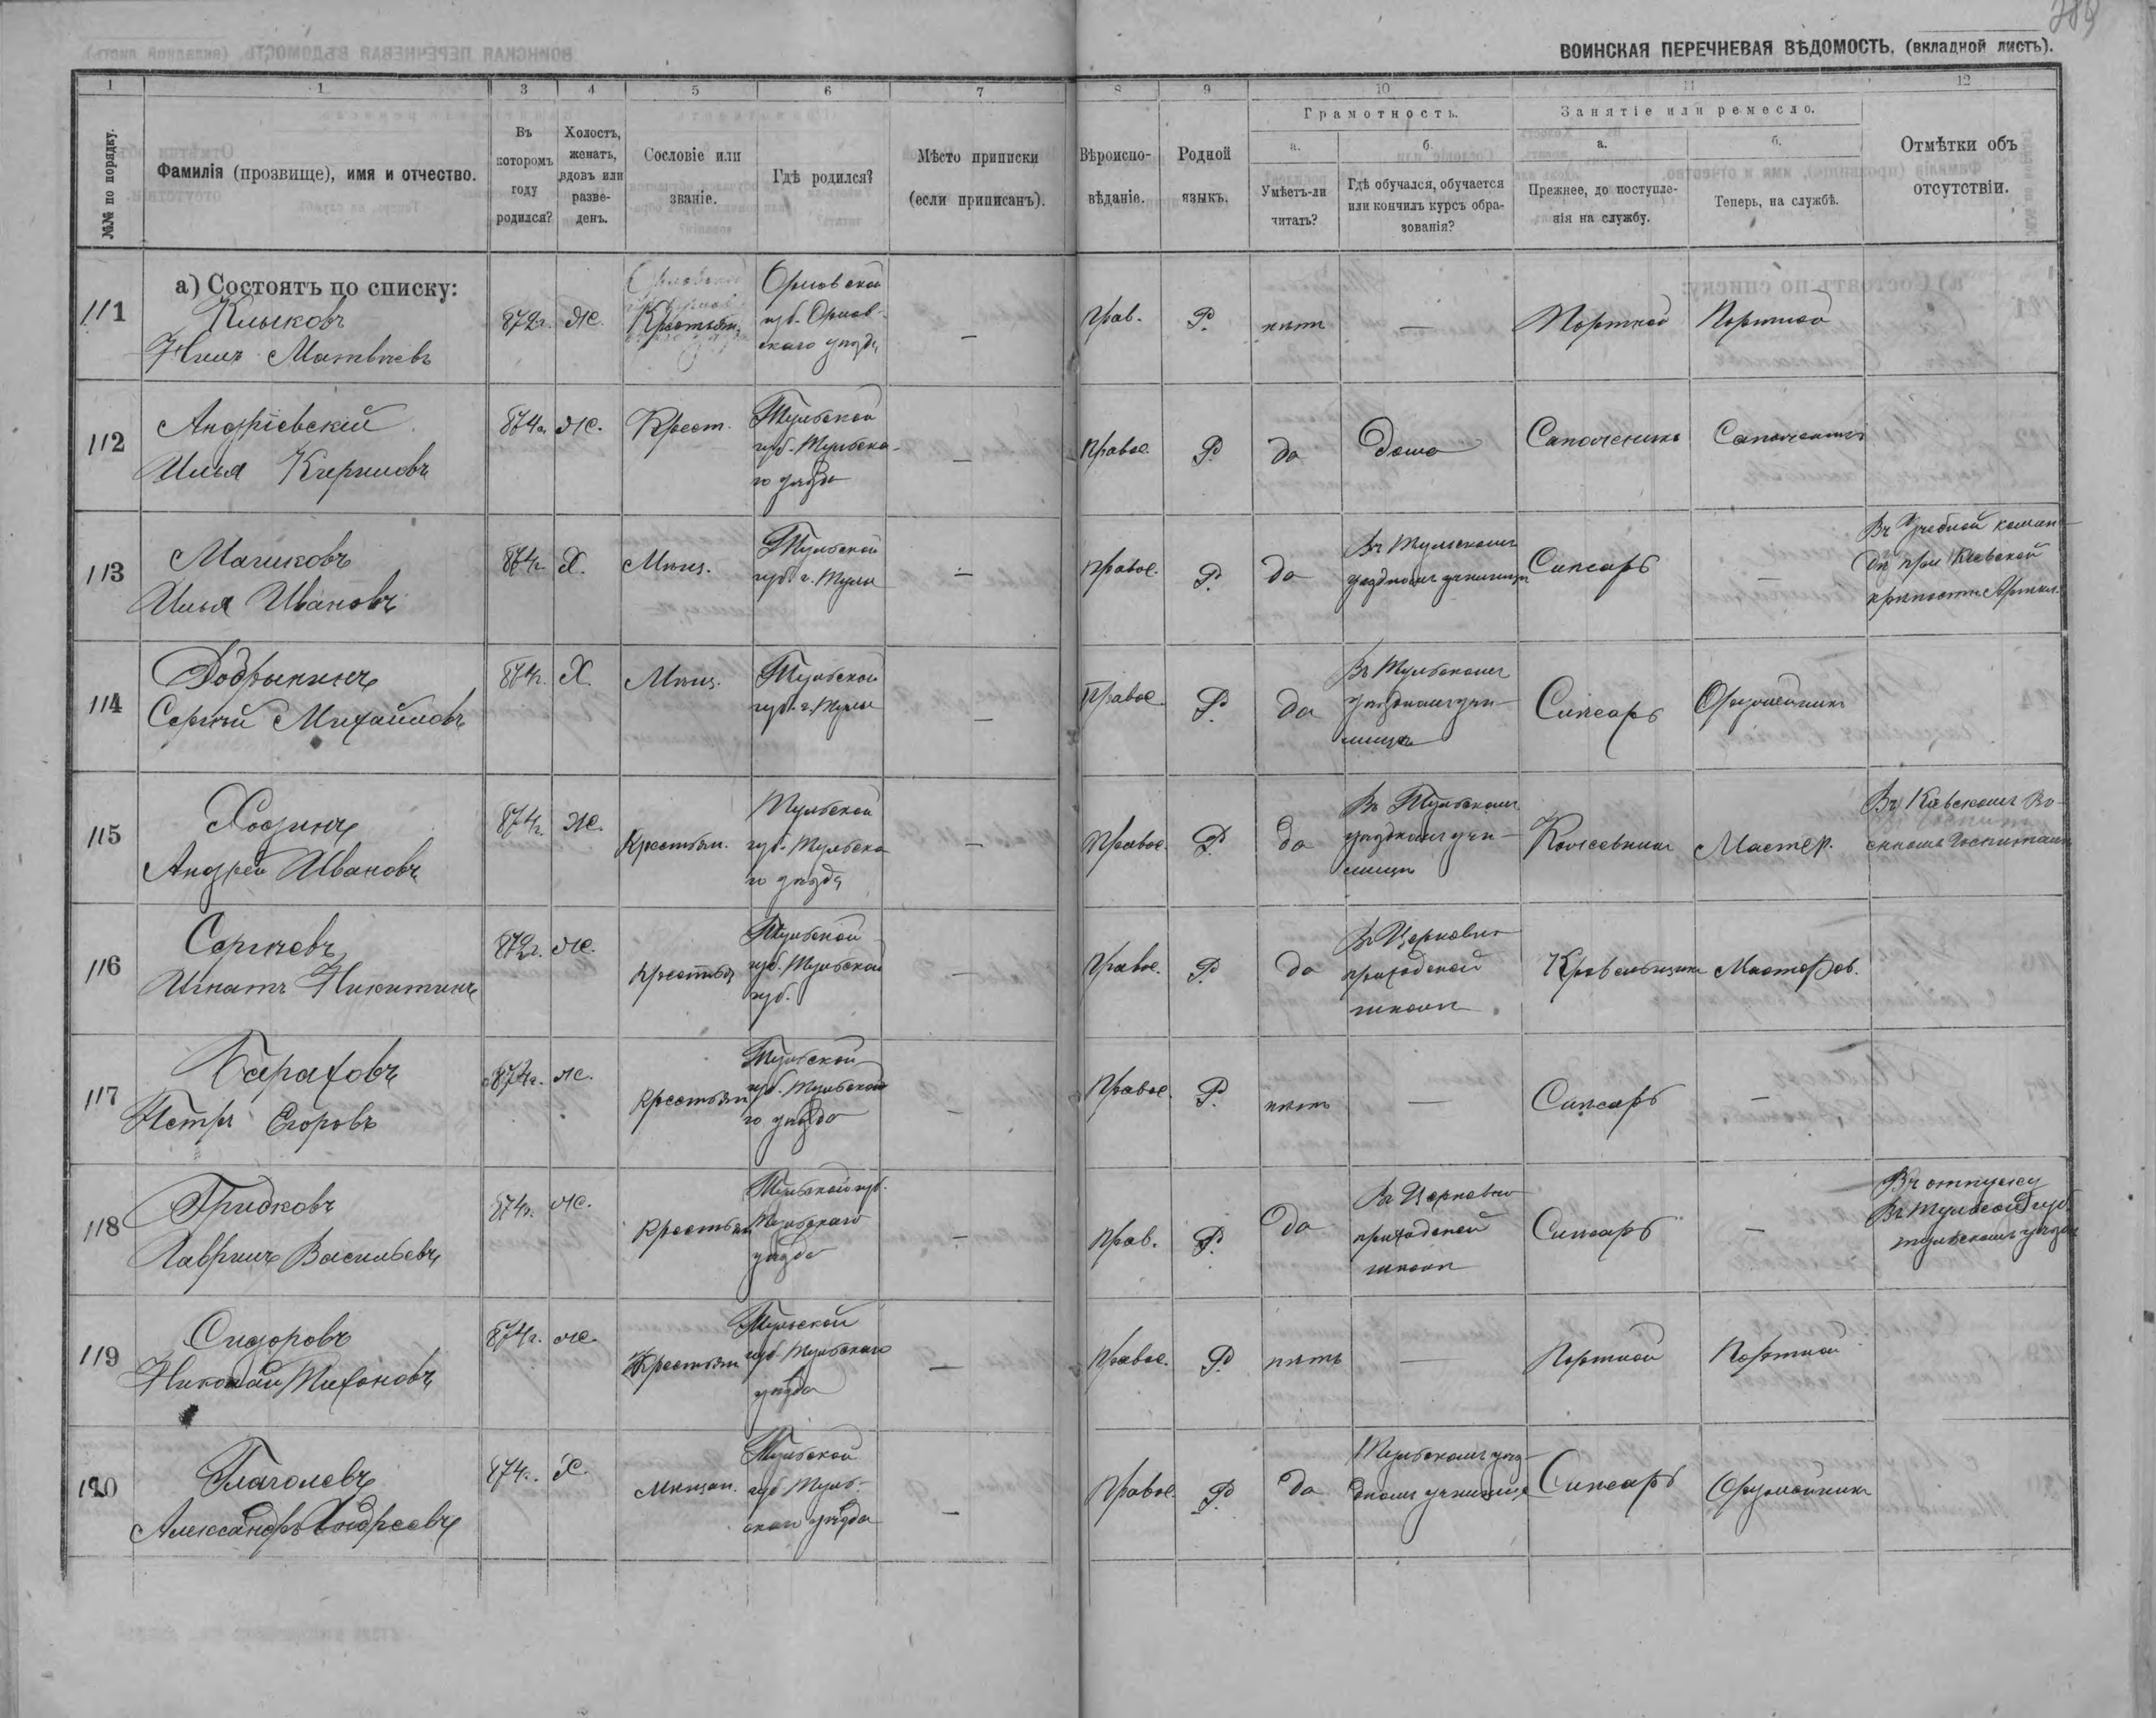 289
ВОИНСКАЯ ПЕРЕЧНЕВАЯ ВѢДОМОСТЬ. (вкладной листъ).
1 1 3 4 5 6 7 8 9 10 11 12
№№ по порядку.
Фамилія (прозвище), имя и отчество.
Въ которомъ году родился?
Холостъ, женатъ, вдовъ или разведенъ.
Сословіе или званіе.
Гдѣ родился?
Мѣсто приписки (если приписанъ).
Вѣроисповѣданіе.
Родной языкъ.
Грамотность.
а. Умѣетъ-ли читать?
б. Гдѣ обучался, обучается или кончилъ курсъ образованія?
Занятіе или ремесло.
а. Прежнее, до поступленія на службу.
б. Теперь, на службѣ.
Отмѣтки объ отсутствіи.
а) Состоятъ по списку:
111
Клыковъ
Матвѣевъ
872г. Ж.
Крестьян.
Орловской
губ. Орлов-
скаго уѣзда
—
Прав. Р. нѣтъ — Портной Портной
112
Андріевскій
Илья Кириловъ
874г. Ж. Крест.
Тульской
губ. Тульска-
го уѣзда
—
Правос. Р. да Дома Сапожникъ Сапожникъ
113
Машковъ
Илья Ивановъ
874г. Х. Мѣщ.
Тульской
губ. г. Тулы
—
Правос. Р. да
Въ Тульскомъ
уѣздномъ училищѣ
Слесарь —
Въ Учебной коман-
дѣ при Кіевской
крѣпостн. Артил.
114
Добрынинъ
Сергѣй Михайловъ
874г. Х. Мѣщ.
Тульской
губ. г. Тулы
—
Правос. Р. да
Въ Тульскомъ
уѣздномъ учи-
лищѣ
Слесарь Оружейникъ
115
Хозинъ
Андрей Ивановъ
874г. Ж. Крестьян.
Тульской
губ. Тульска
го уѣзда
—
Правос. Р. да
Въ Тульскомъ
уѣздномъ учи-
лищѣ
Мастер.
Въ Кіевскомъ Во-
енномъ Госпиталѣ
116
Сергѣевъ
Игнатъ Никитинъ
872г. Ж.
Тульской
губ. Тульской
губ.
—
Правос. Р. да
Въ Церковно
приходской
школѣ
Кровельщикъ Мастеров.
117
Тараховъ
Петръ Егоровъ
874г. Ж. Крестьян
Тульской
губ. Тульской
го уѣзда
—
Правос. Р. нѣтъ — Слесарь —
118
Гридковъ
Лаврилъ Васильевъ
874г. Ж. Крестьян
Тульской губ.
Тульскаго
уѣзда
—
Прав. Р. да
Въ Церковно
приходской
школѣ
Слесарь —
Въ отпуску
Въ Тульской губ.
Тульскомъ уѣздѣ
119
Сидоровъ
Николай Тихоновъ
874г. Ж. Крестьян
Тульской
губ Тульскаго
уѣзда
—
Правос. Р. нѣтъ — Портной Портной
120
Глаголевъ
Александръ Андреевъ
874г. Х. Мѣщан.
Тульской
губ Туль-
скаго уѣзда
—
Правос. Р. да
Тульскомъ уѣз-
дномъ училищѣ
Слесарь Оружейникъ